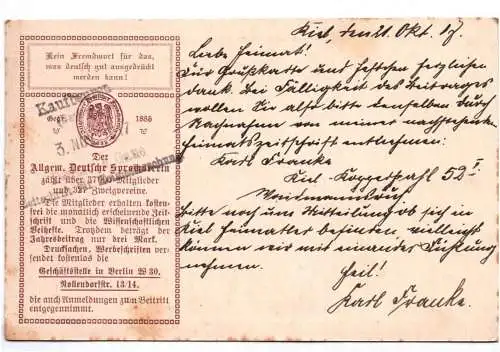 Kein Fremdwort für das,
was deutsch gut ausgedrückt
werden kann!
Kaufbeuren
Gegr. 1885
3. NOV
Der
Allgem. Deutsche Sprachverein
zählt über 37 Mitglieder
in Zweigvereine.
Die Mitglieder erhalten kosten-
frei die monatlich erscheinende Zeit-
schrift und die Wissenschaftlichen
Beihefte. Trotzdem beträgt der
Jahresbeitrag nur drei Mark.
Drucksachen, Werbeschriften ver-
sendet kostenlos die
Geschäftsstelle in Berlin W 30,
Nollendorfstr. 13/14,
die auch Anmeldungen zum Beitritt
entgegennimmt.
Kiel, den 21. Okt. 17.
Liebe Heimat!
Für Grußkarte und Heftchen herzlichen
Dank. Bei Fälligkeit des Beitrages
wollen Sie also bitte denselben durch
Nachnahme von meiner nachstehenden
Heimatszeitschrift entnehmen:
Karl Franke
Kiel - 52 I
Bitte noch um Mitteilung ob sich in
Kiel Heimatler befinden vielleicht
können wir mit einander Fühlung
nehmen.
Heil!
Karl Franke.